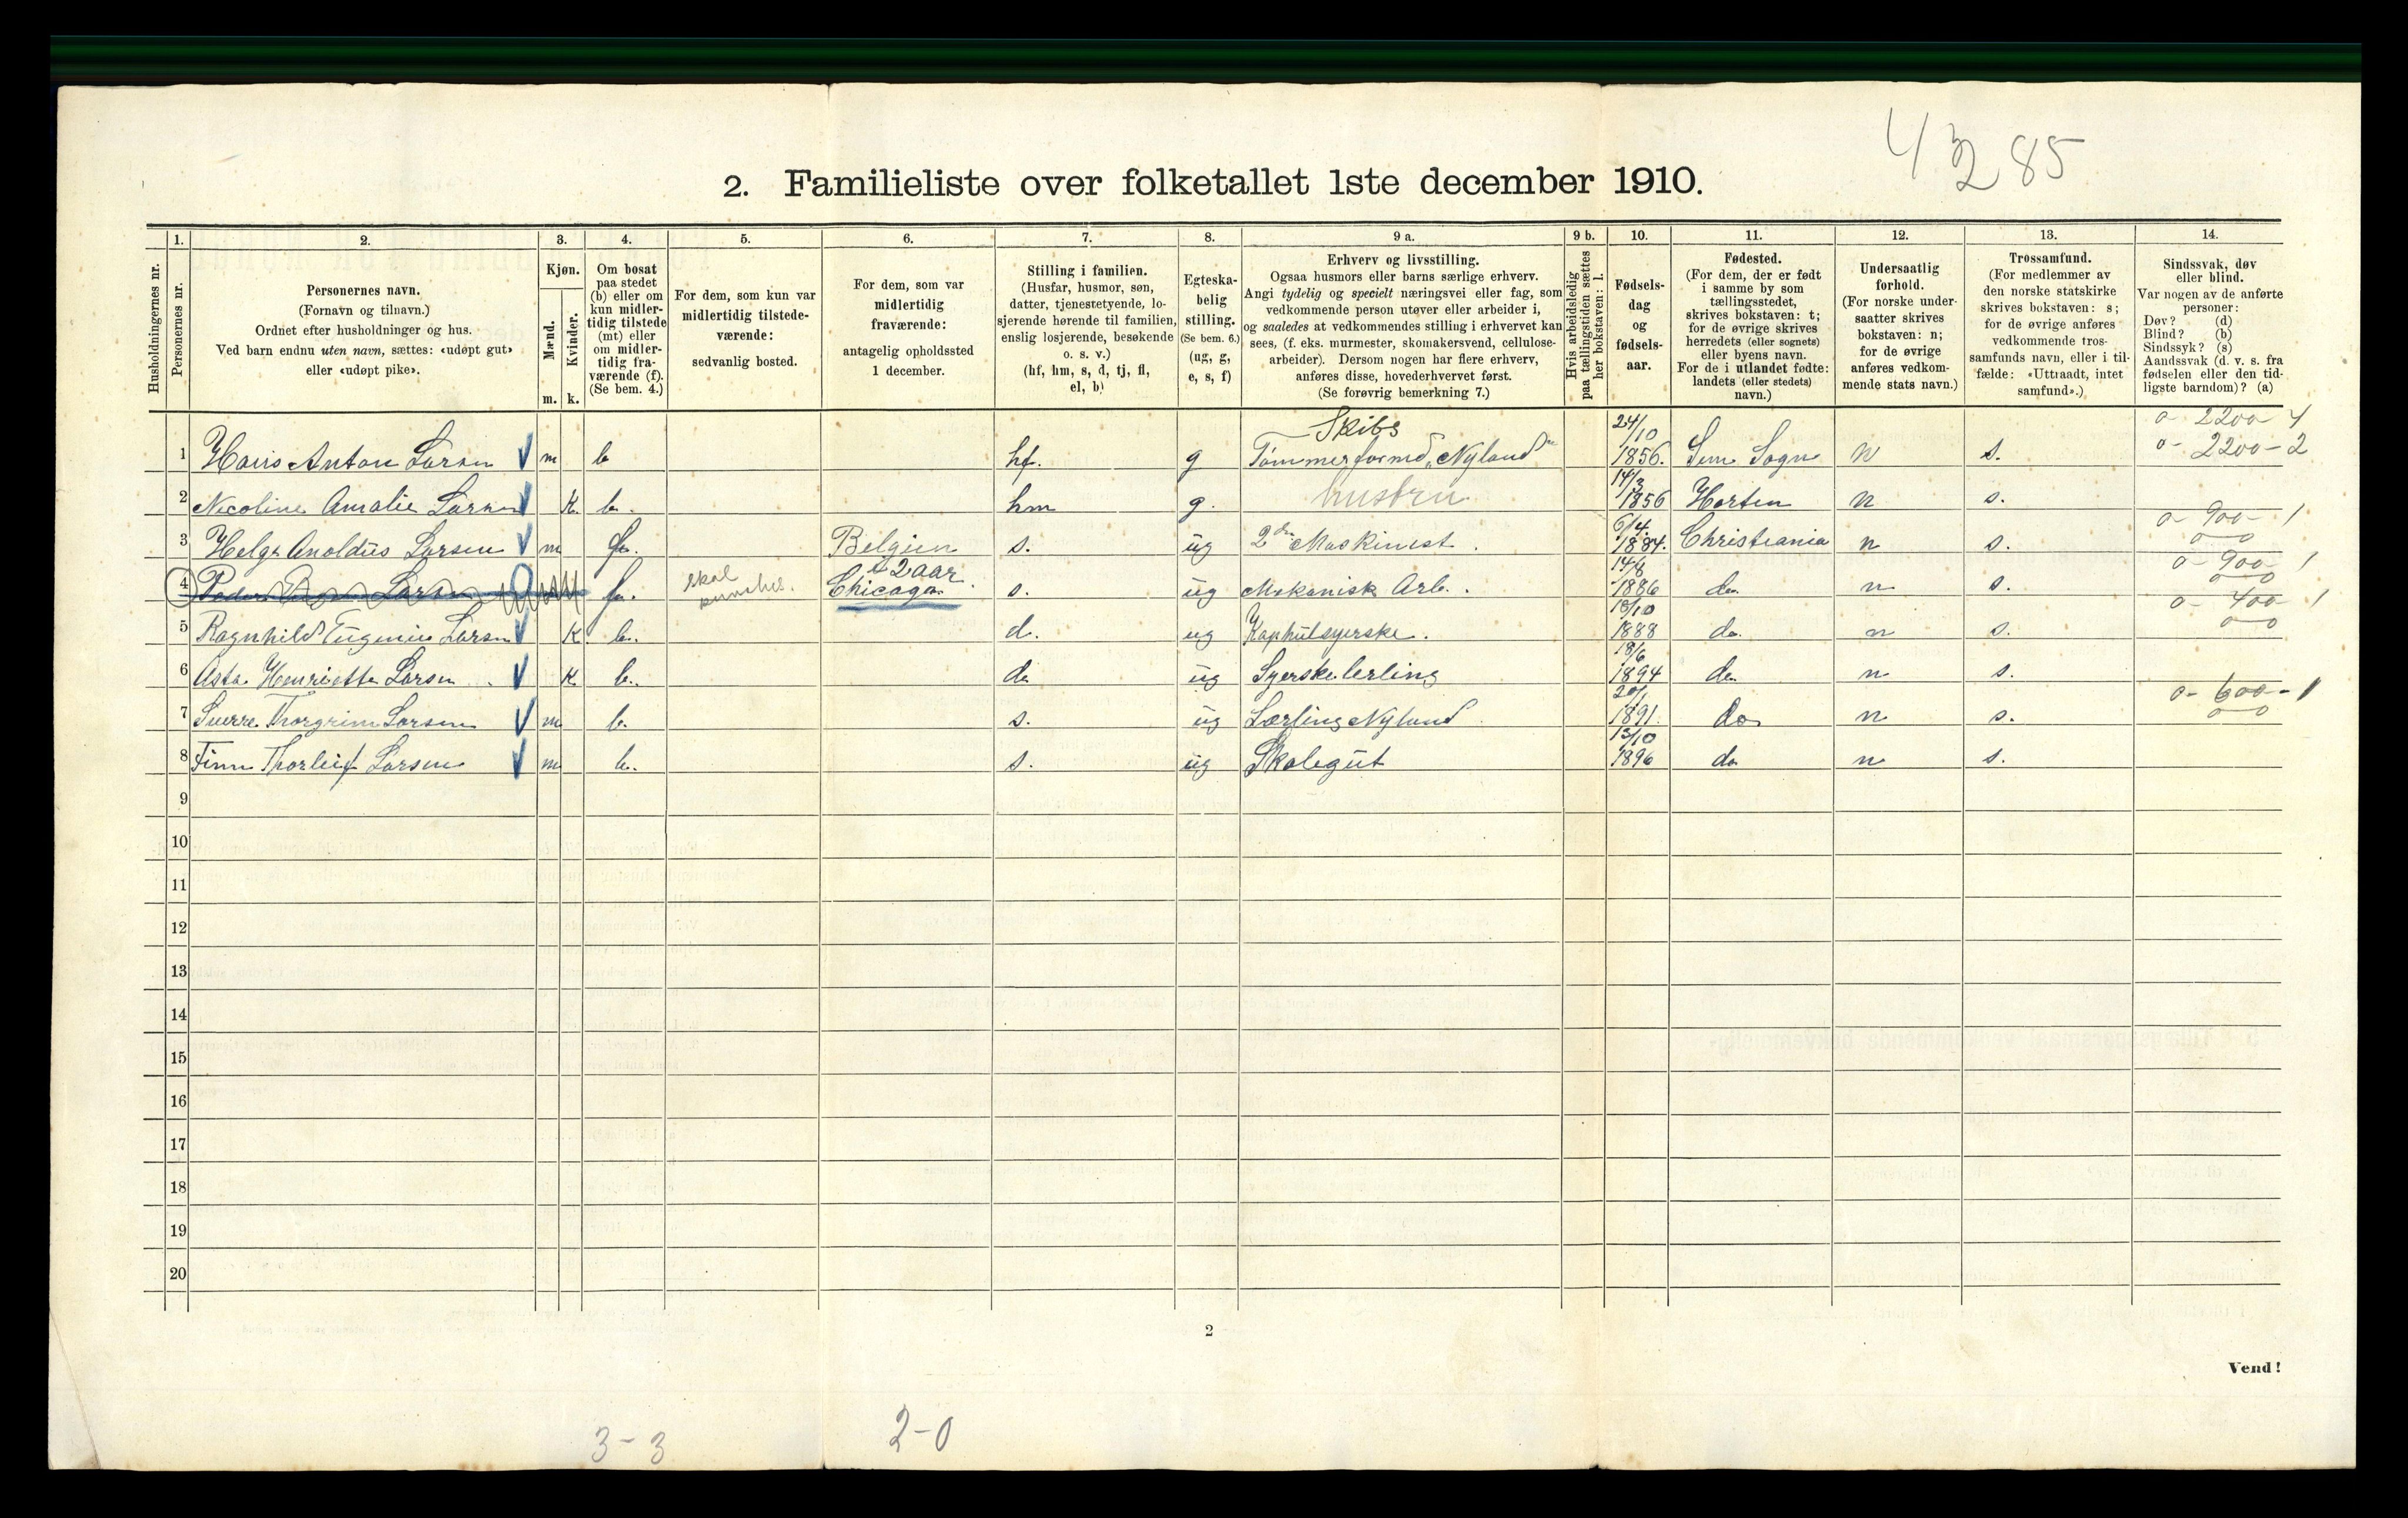 4 3 2 85
2. Familieliste over folketallet 1ste december 1910.
1. 2. 3. 4. 5. 6. 7. 8. 9 a. 9 b. 10. 11. 12. 13. 14.
Husholdningernes nr.
Personernes nr.
Personernes navn.
(Fornavn og tilnavn.)
Ordnet efter husholdninger og hus.
Ved barn endnu uten navn, sættes: «udøpt gut»
eller «udøpt pike».
Kjøn.
Mænd.
Kvinder.
m. k.
Om bosat
paa stedet
(b) eller om
kun midler-
tidig tilstede
(mt) eller
om midler-
tidig fra-
værende (f).
(Se bem. 4.)
For dem, som kun var
midlertidig tilstede-
værende:
sedvanlig bosted.
For dem, som var
midlertidig
fraværende:
antagelig opholdssted
1 december.
Stilling i familien.
(Husfar, husmor, søn,
datter, tjenestetyende, lo-
sjerende hørende til familien,
enslig losjerende, besøkende
o. s. v.)
(hf, hm, s, d, tj, fl,
el, b)
Egteska-
belig
stilling.
(Se bem. 6.)
(ug, g,
e, s, f)
Erhverv og livsstilling.
Ogsaa husmors eller barns særlige erhverv.
Angi tydelig og specielt næringsvei eller fag, som
vedkommende person utøver eller arbeider i,
og saaledes at vedkommendes stilling i erhvervet kan
sees, (f. eks. murmester, skomakersvend, cellulose-
arbeider). Dersom nogen har flere erhverv,
anføres disse, hovederhvervet først.
(Se forøvrig bemerkning 7.)
Hvis arbeidsledig
paa tællingstiden sættes
her bokstaven: l.
Fødsels-
dag
og
fødsels-
aar.
Fødested.
(For dem, der er født
i samme by som
tællingsstedet,
skrives bokstaven: t;
for de øvrige skrives
herredets (eller sognets)
eller byens navn.
For de i utlandet fødte:
landets (eller stedets)
navn.)
Undersaatlig
forhold.
(For norske under-
saatter skrives
bokstaven: n;
for de øvrige
anføres vedkom-
mende stats navn.)
Trossamfund.
(For medlemmer av
den norske statskirke
skrives bokstaven: s;
for de øvrige anføres
vedkommende tros-
samfunds navn, eller i til-
fælde: «Uttraadt, intet
samfund».)
Sindssvak, døv
eller blind.
Var nogen av de anførte
personer:
Døv? (d)
Blind? (b)
Sindssyk? (s)
Aandssvak (d. v. s. fra
fødselen eller den tid-
ligste barndom)? (a)
Skibs 24/10 0- 2200 4
1 Hans Anton Larsen m b hf. g Tømmerformd. „Nyland" 1856. Sem Sogn N s. 0- 2200-2
14/3
2 Nicoline Amalie Larsen K. b. hm g. hustru 1856 Horten N s.
6/4. 0- 900- 1
3 Helge Anoldus Larsen m f. Belgien s. ug 2den Maskinist. 1884. Christiania n s. 0 0
2 aar 14/8 0- 900- 1
4 Peder Larsen f. skal Chicago. s. ug Mekanisk Arb. 1886 do. n s. 0 0
18/10 0- 400- 1
5 Ragnhild Eugenie Larsen K b. d. ug Kaphulsyerske. 1888 do. n s. 0 0
18/6
6 Asta Henriette Larsen K b. d. ug Syerske lerling 1894 do. n s.
20/1 0- 600- 1
7 Sverre Thorgrim Larsen m b. s. ug Lærling Nyland 1891. do n s. 0 0
13/10
8 Finn Thorleif Larsen m b. s. ug Skolegut 1896 do n s.
9
10
11
12
13
14
15
16
17
18
19
20
2
Vend!
3-3 2-0